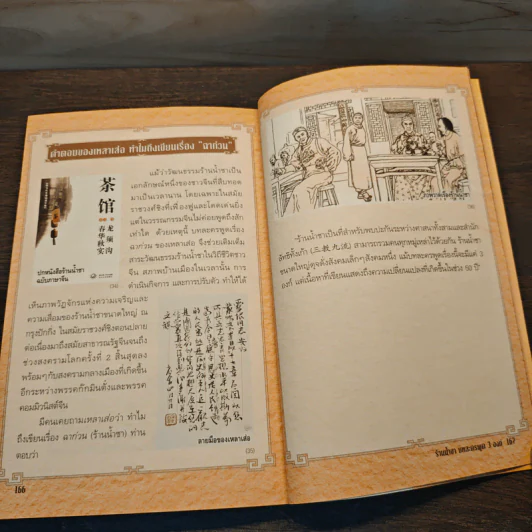 คำตอบของเหลาเส่อ ทำไมถึงเขียนเรื่อง "ฉาก่วน"
茶馆
龙须沟
春华秋实
ปกหนังสือร้านน้ำชา
ฉบับภาษาจีน
แม้ว่าวัฒนธรรมร้านน้ำชาเป็น
เอกลักษณ์หนึ่งของชาวจีนที่สืบทอด
มาเป็นเวลานาน โดยเฉพาะในสมัย
ราชวงศ์ชิงที่เฟื่องฟูและโดดเด่นยิ่ง
แต่ในวรรณกรรมจีนไม่ค่อยพูดถึงสัก
เท่าใด ด้วยเหตุนี้ บทละครพูดเรื่อง
ฉาก่วน ของเหลาเส่อ จึงช่วยเติมเต็ม
สาระวัฒนธรรมร้านน้ำชาในวิถีชีวิตชาว
จีน สภาพบ้านเมืองในเวลานั้น การ
ดำเนินกิจการ และการปรับตัว ทำให้ได้
เห็นภาพวัฏจักรแห่งความเจริญและ
ความเสื่อมของร้านน้ำชาขนาดใหญ่ ณ
กรุงปักกิ่ง ในสมัยราชวงศ์ชิงตอนปลาย
ต่อเนื่องมาถึงสมัยสาธารณรัฐจีนจนถึง
ช่วงสงครามโลกครั้งที่ 2 สิ้นสุดลง
พร้อมๆกับสงครามกลางเมืองที่เกิดขึ้น
อีกระหว่างพรรคก๊กมินตั๋งและพรรค
คอมมิวนิสต์จีน
มีคนเคยถามเหลาเส่อว่า ทำไม
ถึงเขียนเรื่อง ฉาก่วน (ร้านน้ำชา) ท่าน
ตอบว่า
ลายมือของเหลาเส่อ
166
"ร้านน้ำชาเป็นที่สำหรับพบปะกันระหว่างศาสนาทั้งสามและสำนัก
ลัทธิทั้งเก้า (三教九流) สามารถรวมคนทุกหมู่เหล่าไว้ด้วยกัน ร้านน้ำชา
ขนาดใหญ่ดุจดั่งสังคมเล็กๆสังคมหนึ่ง แม้บทละครพูดเรื่องนี้จะมีแค่ 3
องก์ แต่เนื้อหาที่เขียนแสดงถึงความเปลี่ยนแปลงที่เกิดขึ้นในช่วง 50 ปี"
ร้านน้ำชา บทละครพูด 3 องก์ 167